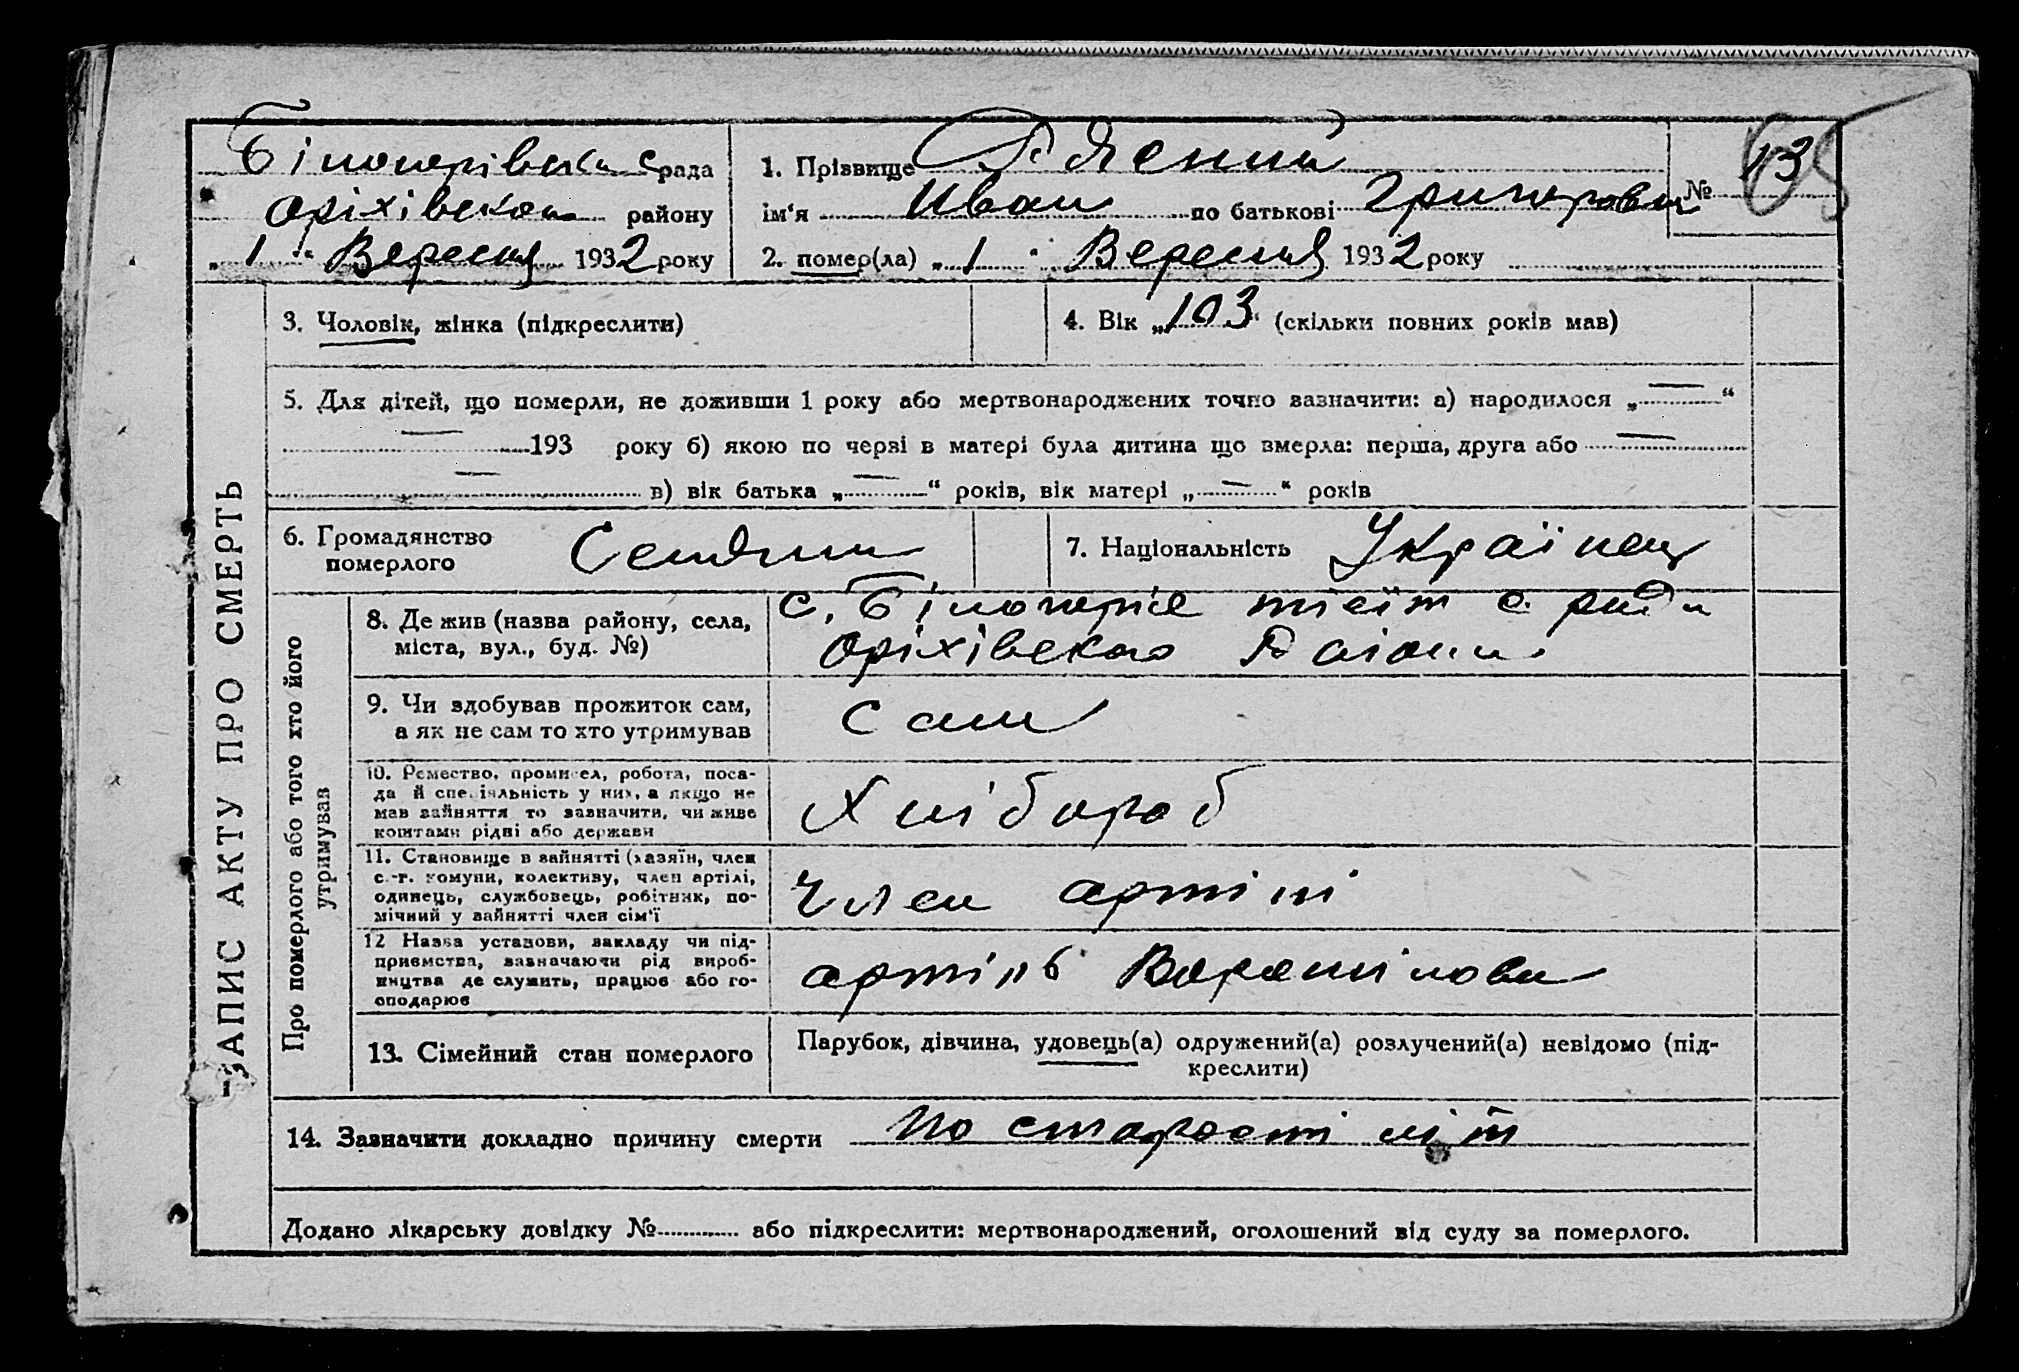 Білогорівська срада
Оріхівского району
„ 1 “ Вересня 1932 року
1. Прізвище
ім‘я Иван по батькові Григорович
2. помер(ла) „ 1 “ Вересня 1932 року
№ 13
ЗАПИС АКТУ ПРО СМЕРТЬ
3. Чоловік, жінка (підкреслити)
4. Вік „103“ (скільки повних років мав)
5. Для дітей, що померли, не доживши 1 року або мертвонароджених точно зазначити: а) народилося „—“
— 193 року б) якою по черзі в матері була дитина що вмерла: перша, друга або —
— в) вік батька „—“ років, вік матері „—“ років
6. Громадянство
померлого
7. Національність Українец
Про померлого або того хто його
утримував
8. Де жив (назва району, села,
міста, вул., буд. №)
с. Білогоріє тієїж с. ради
Оріхівского Району
9. Чи здобував прожиток сам,
а як не сам то хто утримував
Сам
10. Ремество, промисел, робота, поса-
да й спеціяльність у них, а якщо не
мав зайняття то зазначити, чи живе
коштами рідні або держави
Хлібороб
11. Становище в зайнятті (хазяїн, член
с.-г. комуни, колективу, член артілі,
одинець, службовець, робітник, по-
мічний у зайнятті член сім‘ї
Член артілі
12 Назва установи, закладу чи під-
приємства, зазначаючи рід вироб-
ництва де служить, працює або го-
сподарює
артіль Ворошілова
13. Сімейний стан померлого
Парубок, дівчина, удовець(а) одружений(а) розлучений(а) невідомо (під-
креслити)
14. Зазначити докладно причину смерти по старості літ
Додано лікарську довідку № або підкреслити: мертвонароджений, оголошений від суду за померлого.